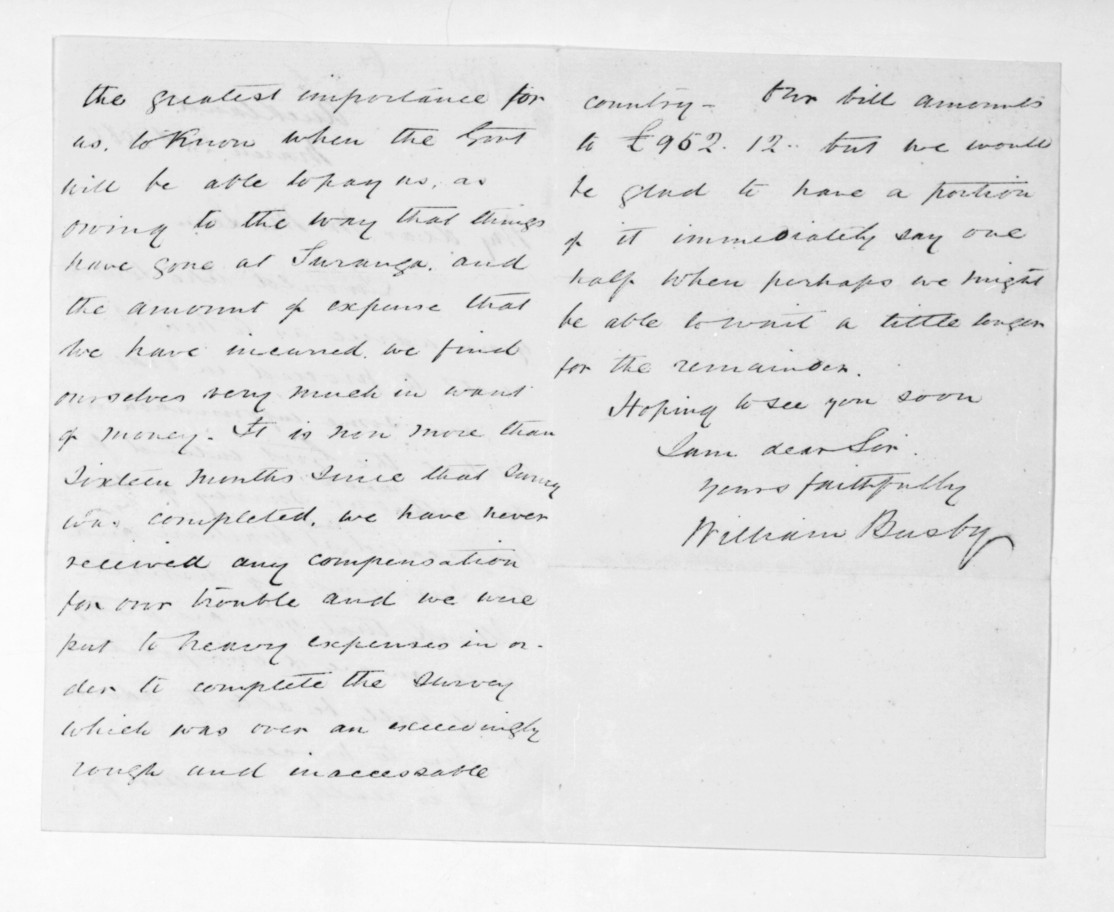 the greatest importance for
us, to Know when the Govt
will be able to pay us, as
owing to the way that things
have gone at Turanga, and
the amount of expense that
we have incurred, we find
ourselves very much in want
of money. It is now more than
Sixteen months Since that Survey
was completed, we have never
received any compensation
for our trouble and we were
put to heavy expenses in or-
der to complete the survey
which was over an exceedingly
rough and inaccessable
country - Our bill amounts
to £952. 12.. but we would
be glad to have a portion
of it immediately say one
half when perhaps we might
be able to wait a little longer
for the remainder.
Hoping to see you soon
I am dear Sir.
yours faithfully
William Busby